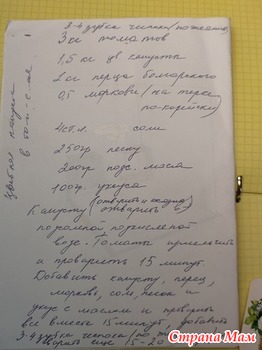 3-4 зубка чеснока (по желанию)
3 кг томатов
1,5 кг цв капусты
2 кг перца болгарского
0,5 моркови (на терке
по-корейски)
4 ст.л. соли
250 гр песку
200 гр подс. масла
100 гр уксуса
Капусту (отварить и охладить) отварить в
подсоленой подкисленой
воде. Томаты измельчить
и проварить 15 минут.
Добавить капусту, перец,
морковь, соль, песок и
уксус с маслом и проварить
все вместе 15 минут, добавить
3-4 зубка чеснока
варить еще 15-20
Цветная капуста
в томате
Страна Мам